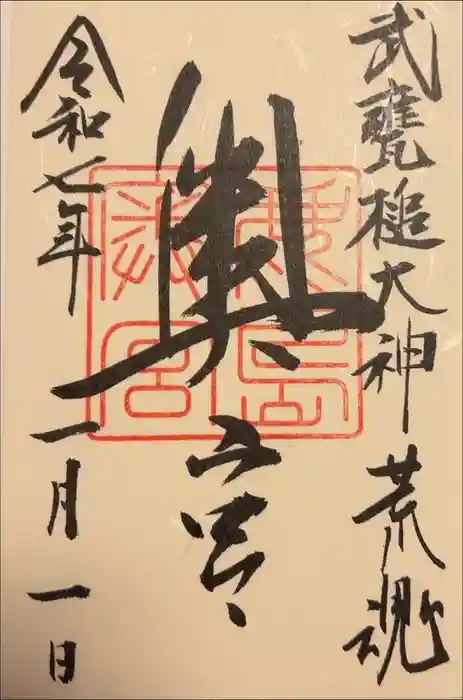 武甕槌大神 荒魂
奥宮
鹿島
神宮
令和七年 一月一日